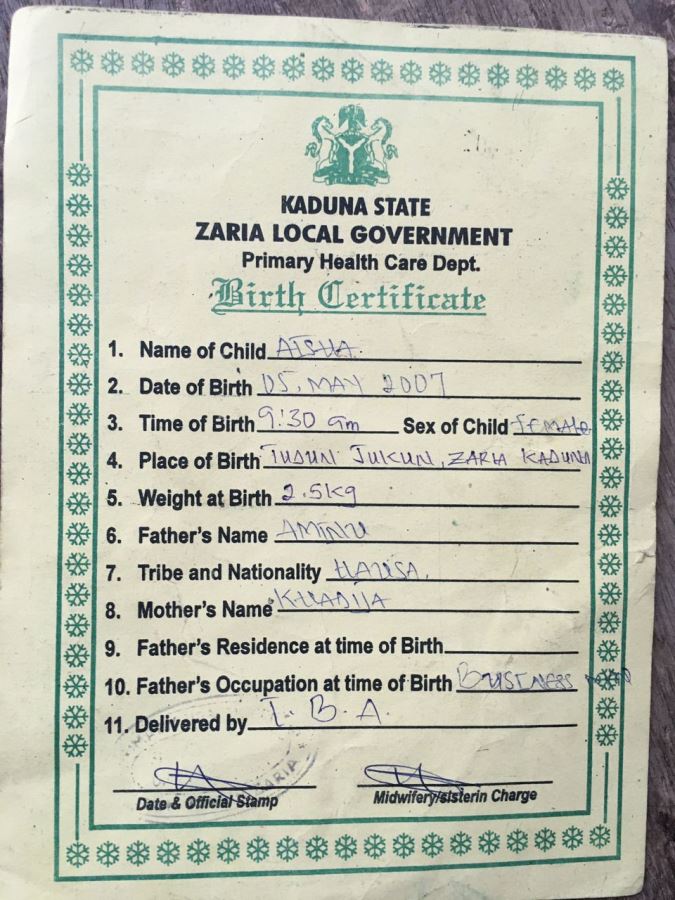 KADUNA STATE
ZARIA LOCAL GOVERNMENT
Primary Health Care Dept.
Birth Certificate
1. Name of Child AISHA
2. Date of Birth 05, MAY 2007
3. Time of Birth 9:30 am Sex of Child female
4. Place of Birth TUDUN JUKUN, ZARIA KADUNA
5. Weight at Birth 2.5kg
6. Father's Name AMINU
7. Tribe and Nationality HAUSA.
8. Mother's Name KHADIJA
9. Father's Residence at time of Birth
10. Father's Occupation at time of Birth BUSINESS MAN
11. Delivered by I. B. A.
ZARIA
Date & Official Stamp Midwifery/sisterin Charge